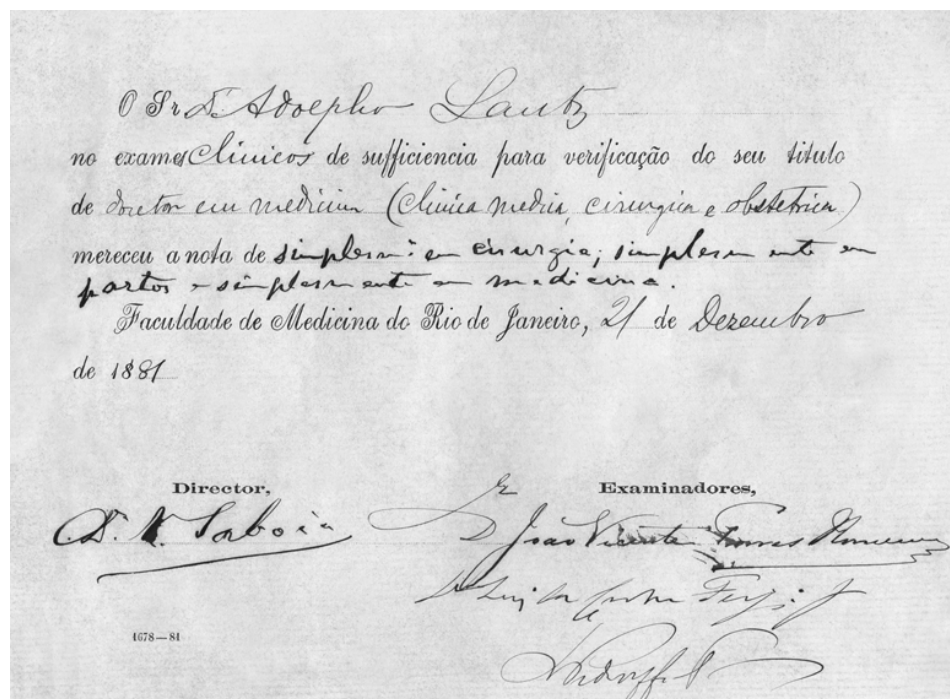 O Sr Dr. Adolpho Lutz
no exames Clinicos de sufficiencia para verificação do seu titulo
de doutor em medicina (Clinica medica, cirurgica e obstetrica)
mereceu a nota de simplesm.te em cirurgia; simplesmente em
partos e simplesmente em medicina.
Faculdade de Medicina do Rio de Janeiro, 21 de Dezembro
de 1881
Director,
Examinadores,
Dr. V. Saboia
Dr João Vicente Torres Homem
1678—81